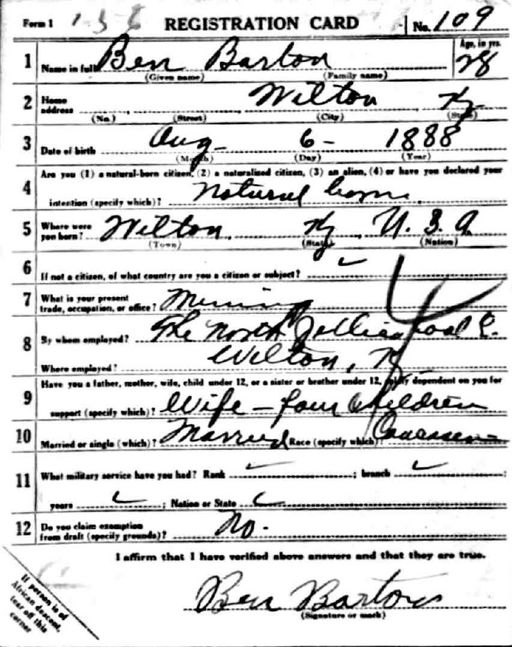 Form 1 REGISTRATION CARD No. 109
1 Name in full Ben Barton Age, in yrs. 28
(Given name) (Family name)
2 Home address Wilton Ky
(No.) (Street) (City) (State)
3 Date of birth Aug 6 - 1888
(Month) (Day) (Year)
Are you (1) a natural-born citizen, (2) a naturalized citizen, (3) an alien, (4) or have you declared your
4 intention (specify which)? Natural born
5 Where were you born? Wilton Ky U. S. A
(Town) (State) (Nation)
6 If not a citizen, of what country are you a citizen or subject?
7 What is your present trade, occupation, or office? Mining
8 By whom employed? The North Jellico Coal C.
Where employed? Wilton, Ky
Have you a father, mother, wife, child under 12, or a sister or brother under 12, dependent on you for
9 support (specify which)? Wife - four children
10 Married or single (which)? Married Race (specify which)?
11 What military service have you had? Rank ; branch ;
years ; Nation or State
12 Do you claim exemption from draft (specify grounds)? No.
I affirm that I have verified above answers and that they are true.
Ben Barton
(Signature or mark)
If person is of
African descent,
tear off this
corner